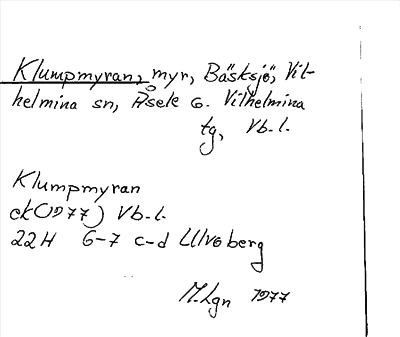 Klumpmyran, myr, Bäsksjö, Vil-
helmina sn, Åsele o. Vilhelmina
tg, Vb.l.
Klumpmyran
ek (1977) Vb.l.
22H 6-7 c-d Ulvoberg
M.Lgn 1977